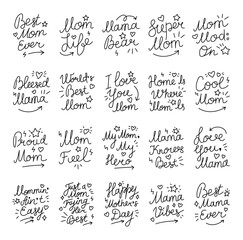 Best
Mom
Ever
Mom
Life
Mama
Bear
Super
Mom
Mom
Mod
On
Blessed
Mama
World's
Best
Mom
I love
You
Mom
Home is
Where
Mom Is
Cool
Mom
Proud
Mom
Mom
Feel
My Mom,
My
Hero
Mama
Knows
Best
Love
You
Mama
Mommin'
Ain't
Easy
Just a
Mom
Trying
Her Best
Happy
Mother's
Day
Mama
Vibes
Best
Mama
Ever